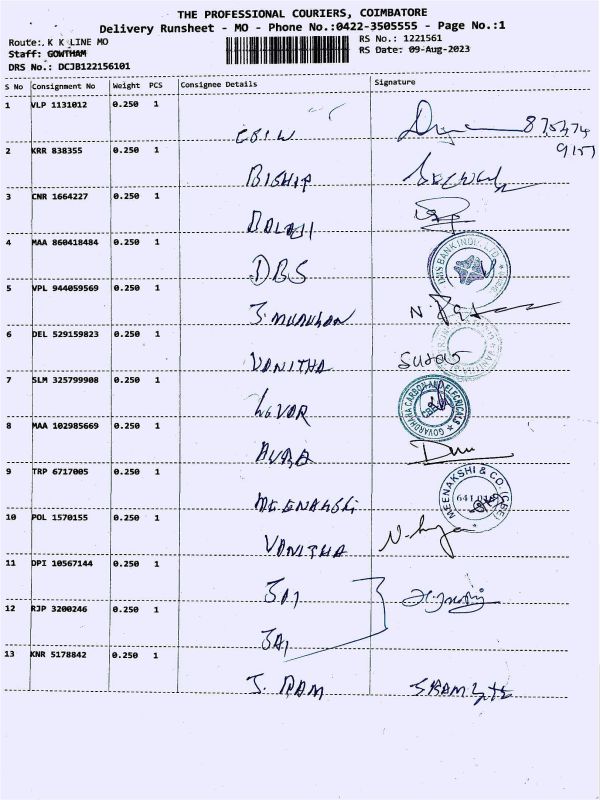 THE PROFESSIONAL COURIERS, COIMBATORE
Delivery Runsheet - MO - Phone No.:0422-3505555 - Page No.:1
Route: K K LINE MO
RS No.: 1221561
Staff: GOWTHAM
RS Date: 09-Aug-2023
DRS No.: DCJB122156101
S No Consignment No Weight PCS Consignee Details Signature
1 VLP 1131012 0.250 1
2 KRR 838355 0.250 1
BISHIP
3 CNR 1664227 0.250 1
BALAJI
4 MAA 860418484 0.250 1
DBS
DBS BANK INDIA LTD
5 VPL 944059569 0.250 1
S. MURUGAN
6 DEL 529159823 0.250 1
VANITHA
7 SLM 325799908 0.250 1
GOVARDHANA CARBON AND ELECRICALS
CBE
8 MAA 102985669 0.250 1
9 TRP 6717005 0.250 1
MEENAKSHI
MEENAKSHI & CO. (CBE)
10 POL 1570155 0.250 1
VANITHA
11 DPI 10567144 0.250 1
SAI
12 RJP 3200246 0.250 1
SAI
13 KNR 5178842 0.250 1
S. RAM